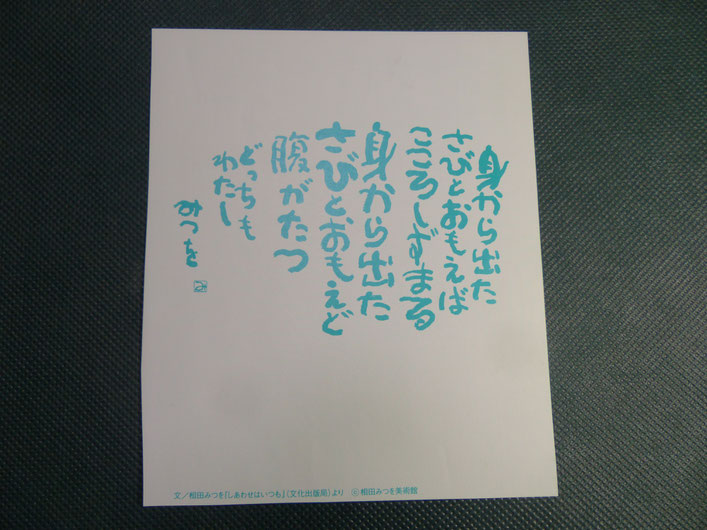 身から出た
さびとおもえば
こころしずまる
身から出た
さびとおもえど
腹がたつ
どっちも
わたし
みつを
み
文/相田みつを『しあわせはいつも』(文化出版局)より ©相田みつを美術館